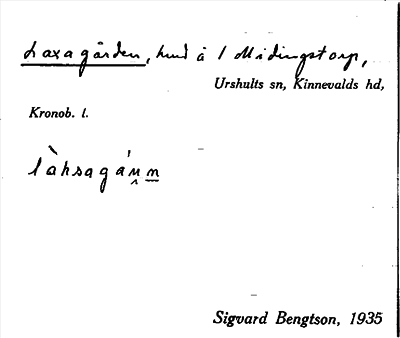 Laxagården, hmd å 1 Midingstorp,
Urshults sn, Kinnevalds hd,
Kronob. l.
làksagán̬n̲
Sigvard Bengtson, 1935